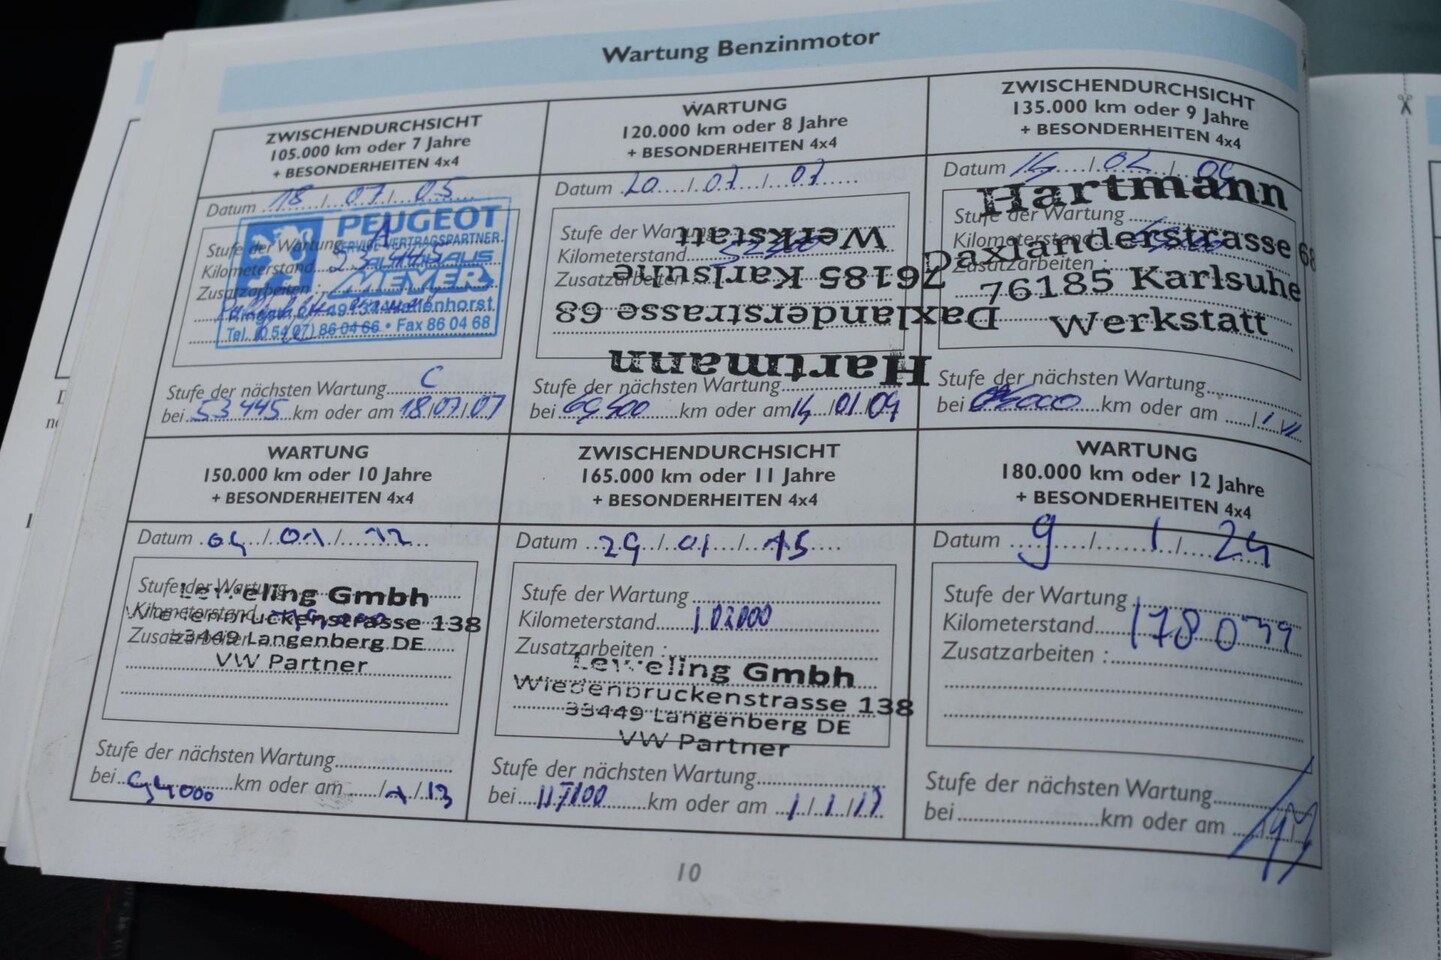 Wartung Benzinmotor
ZWISCHENDURCHSICHT
105.000 km oder 7 Jahre
+ BESONDERHEITEN 4x4
Datum 18 / 07 / 05
Stufe der Wartung A
Kilometerstand
Zusatzarbeiten :
PEUGEOT
SERVICE-VERTRAGSPARTNER
AUTOHAUS
MEYER
Tel. (0 54 07) 86 04 66 • Fax 86 04 68
Stufe der nächsten Wartung C
bei 53 445 km oder am 18/07/07
WARTUNG
120.000 km oder 8 Jahre
+ BESONDERHEITEN 4x4
Datum 20 / 07 / 07
Stufe der Wartung
Kilometerstand
Zusatzarbeiten
Hartmann
Daxlanderstrasse 68
76185 Karlsuhe
Werkstatt
Stufe der nächsten Wartung
bei km oder am 14/01/09
ZWISCHENDURCHSICHT
135.000 km oder 9 Jahre
+ BESONDERHEITEN 4x4
Datum 14 /
Stufe der Wartung
Kilometerstand
Zusatzarbeiten :
Hartmann
Daxlanderstrasse 68
76185 Karlsuhe
Werkstatt
Stufe der nächsten Wartung
bei km oder am
WARTUNG
150.000 km oder 10 Jahre
+ BESONDERHEITEN 4x4
Datum 04 / 01 / 12
Stufe der Wartung
Kilometerstand
Zusatzarbeiten
Leweling Gmbh
Wiedenbruckenstrasse 138
33449 Langenberg DE
VW Partner
Stufe der nächsten Wartung
bei 94000 km oder am / 1 / 13
ZWISCHENDURCHSICHT
165.000 km oder 11 Jahre
+ BESONDERHEITEN 4x4
Datum 29 / 01 / 15
Stufe der Wartung
Kilometerstand 102000
Zusatzarbeiten
Leweling Gmbh
Wiedenbruckenstrasse 138
33449 Langenberg DE
VW Partner
Stufe der nächsten Wartung
bei 117100 km oder am 1/1/17
WARTUNG
180.000 km oder 12 Jahre
+ BESONDERHEITEN 4x4
Datum 9 / 1 / 24
Stufe der Wartung
Kilometerstand
Zusatzarbeiten :
Stufe der nächsten Wartung
bei km oder am
10